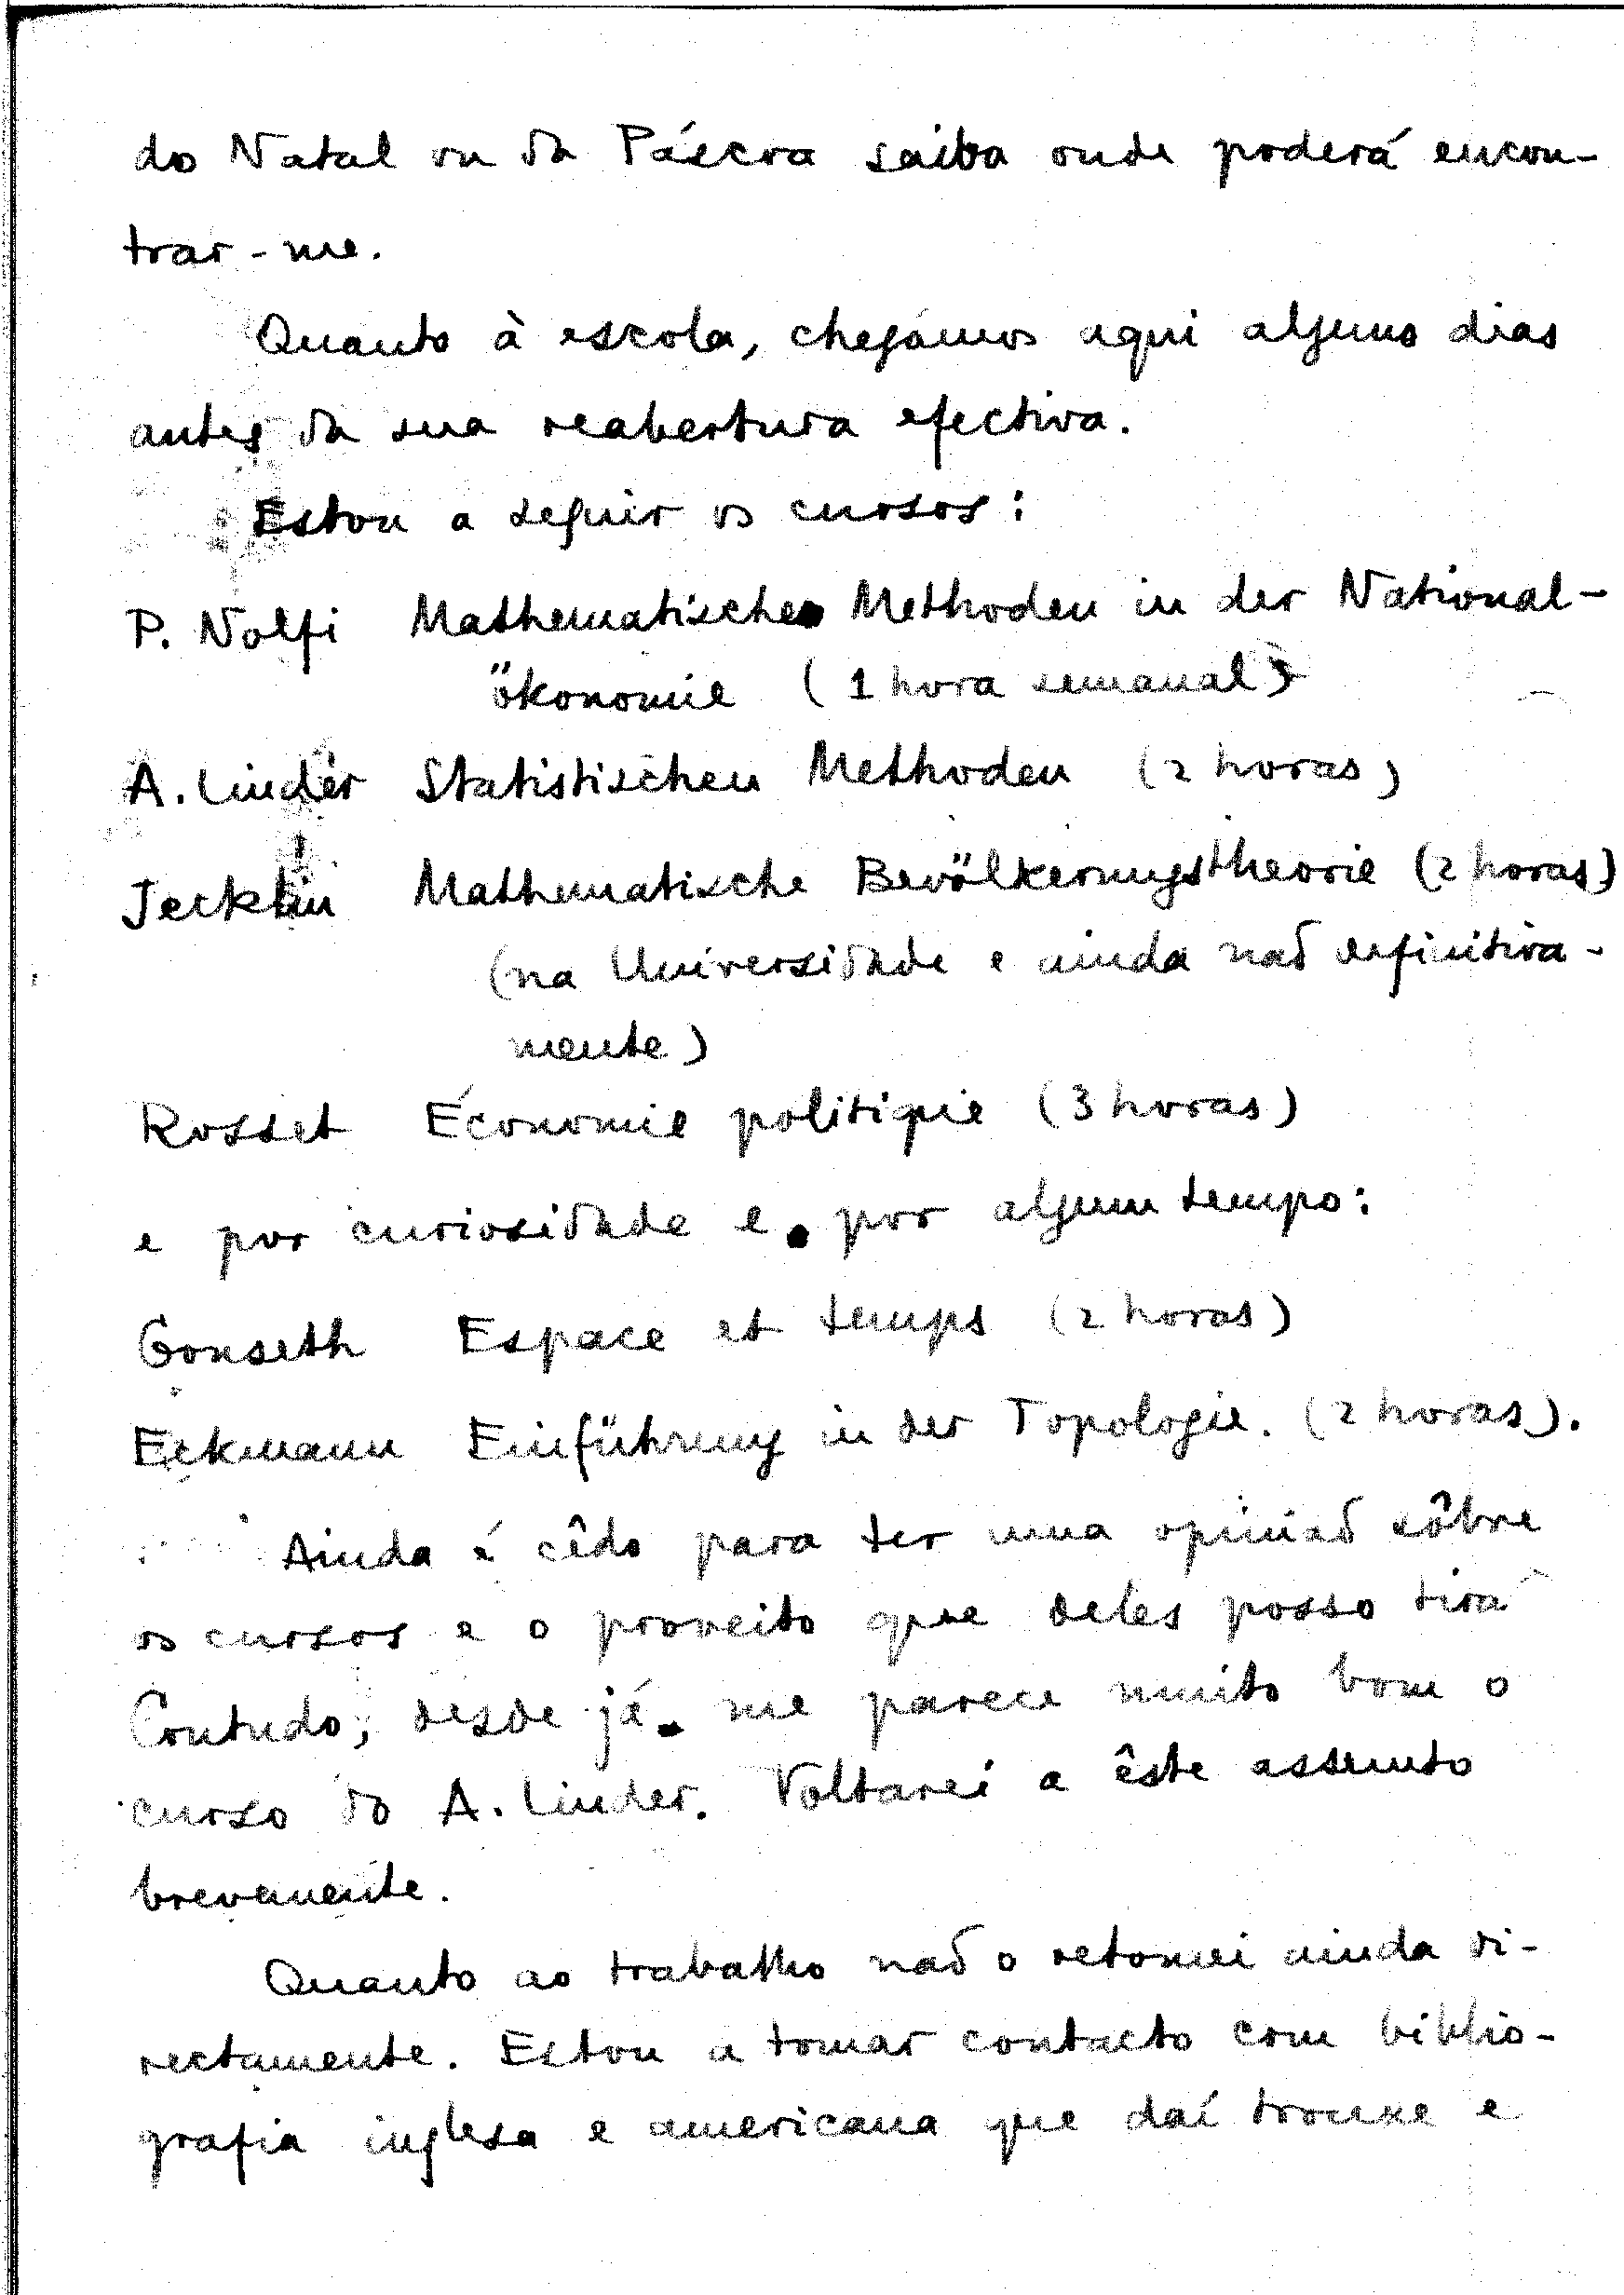 do Natal ou da Páscoa saiba onde poderá encon-
trar-me.
Quanto à escola, chegámos aqui alguns dias
antes da sua reabertura efectiva.
Estou a seguir os cursos:
P. Nolfi Mathematische Methoden in der National-
ökonomie (1 hora semanal)
A. Linder Statistischen Methoden (2 horas)
Jecklin Mathematische Bevölkerungstheorie (2 horas)
(na Universidade e ainda não definitiva-
mente)
Rosset Économie politique (3 horas)
e por curiosidade e por algum tempo:
Gonseth Espace et temps (2 horas)
Eckmann Einführung in der Topologie. (2 horas).
Ainda é cêdo para ter uma opinião sôbre
os cursos e o proveito que deles posso tirar
Contudo, desde já me parece muito bom o
curso do A. Linder. Voltarei a êste assunto
brevemente.
Quanto ao trabalho não o retomei ainda di-
rectamente. Estou a tomar contacto com biblio-
grafia inglesa e americana que daí trouxe e